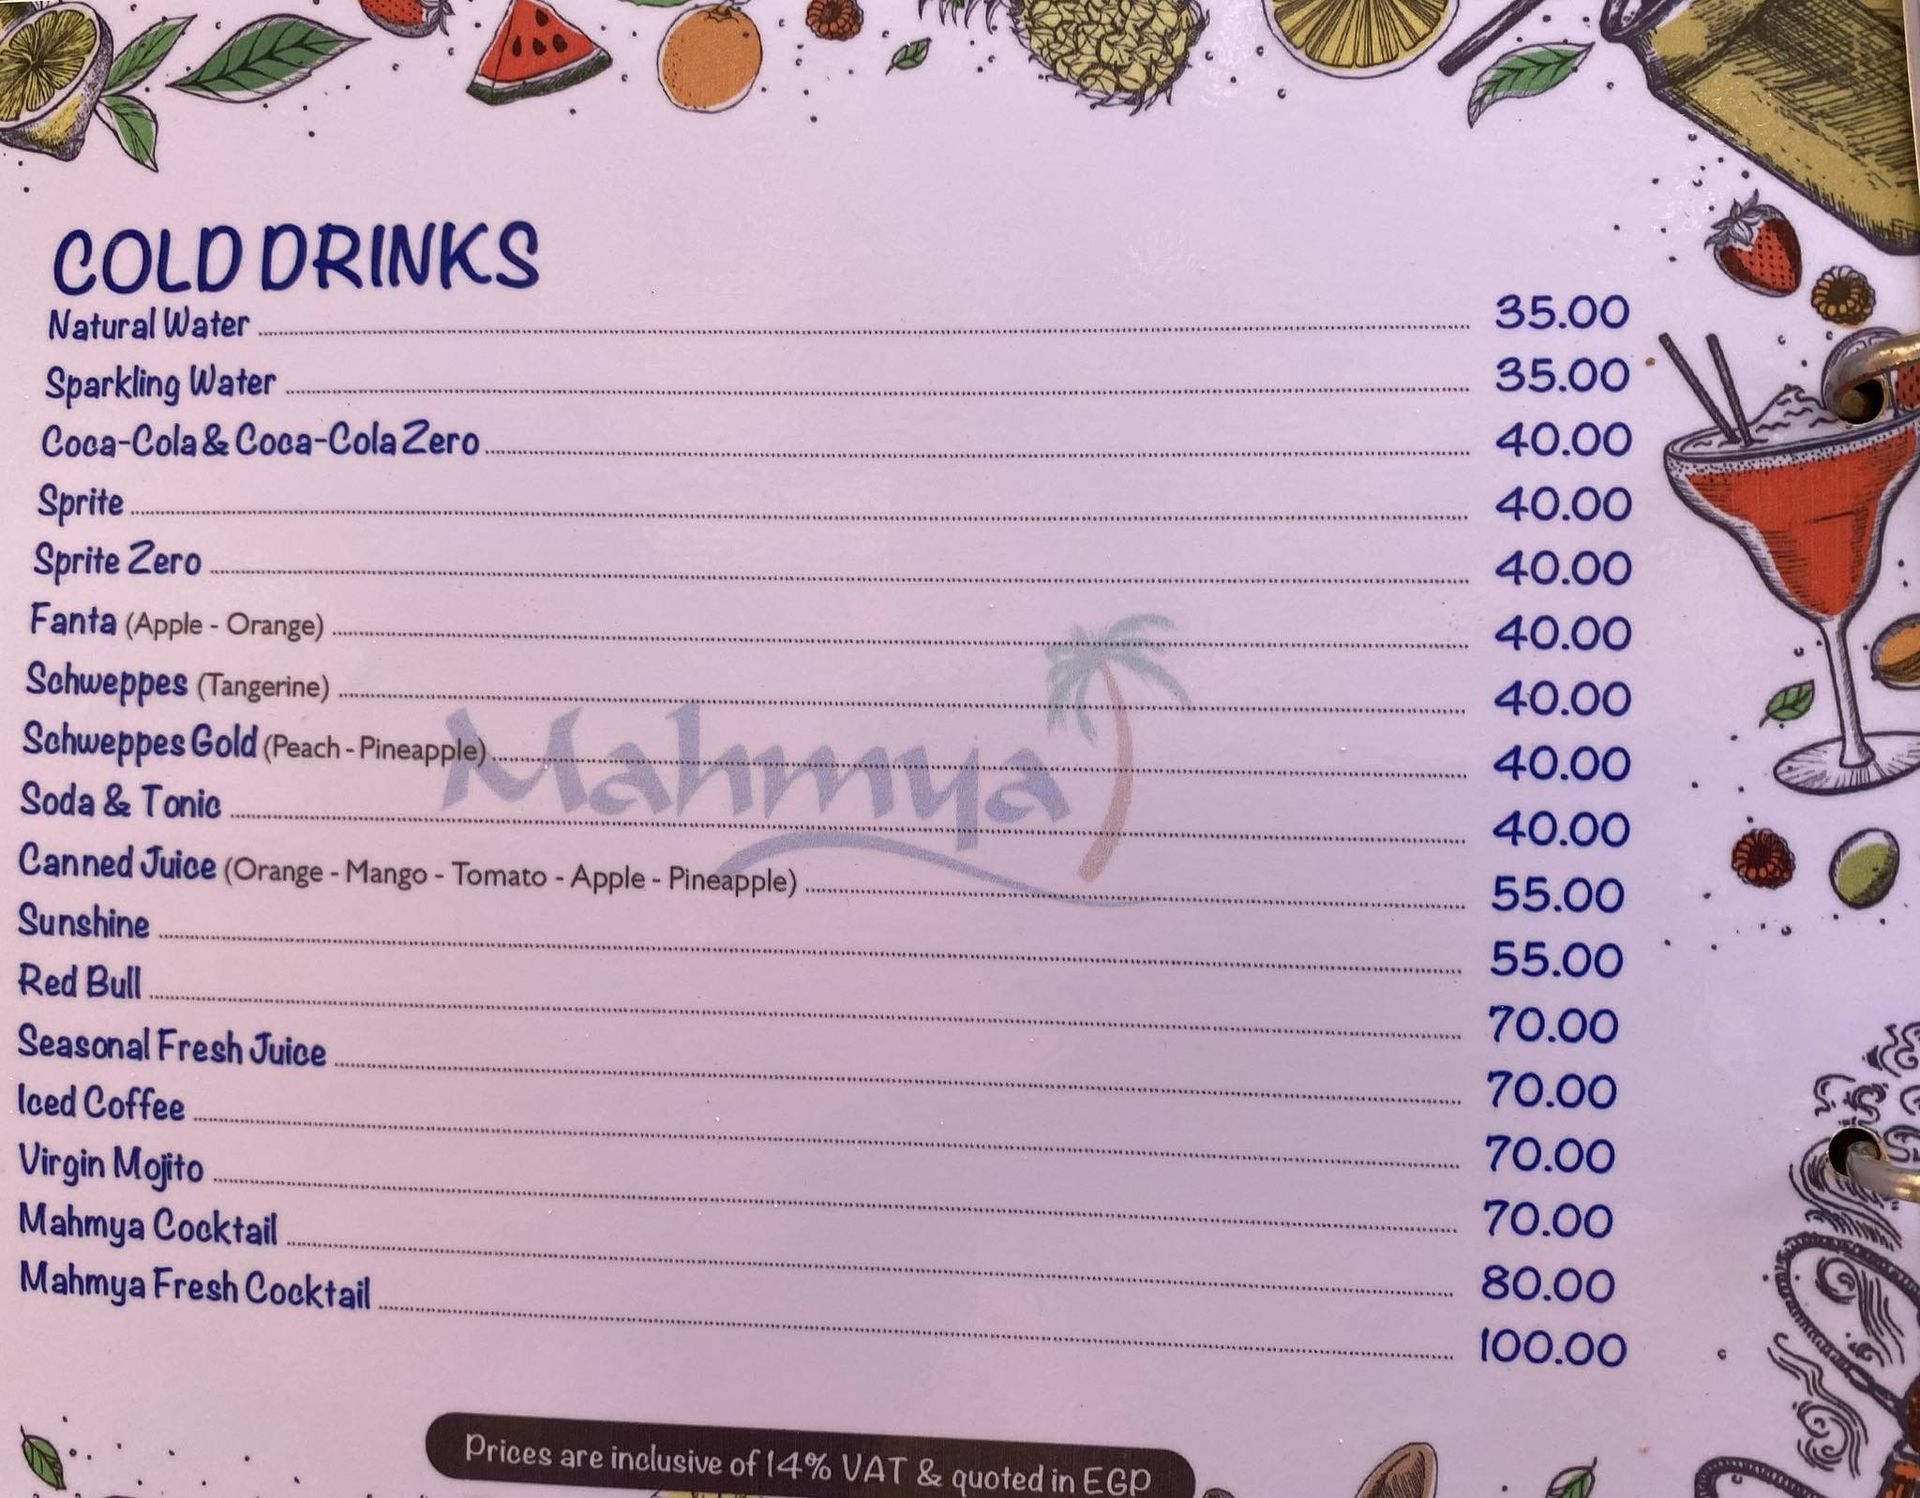 COLD DRINKS
Natural Water 35.00
Sparkling Water 35.00
Coca-Cola & Coca-Cola Zero 40.00
Sprite 40.00
Sprite Zero 40.00
Fanta (Apple - Orange) 40.00
Schweppes (Tangerine) 40.00
Schweppes Gold (Peach - Pineapple) 40.00
Soda & Tonic 40.00
Canned Juice (Orange - Mango - Tomato - Apple - Pineapple) 55.00
Sunshine 55.00
Red Bull 70.00
Seasonal Fresh Juice 70.00
Iced Coffee 70.00
Virgin Mojito 70.00
Mahmya Cocktail 80.00
Mahmya Fresh Cocktail 100.00
Mahmya
Prices are inclusive of 14% VAT & quoted in EGP